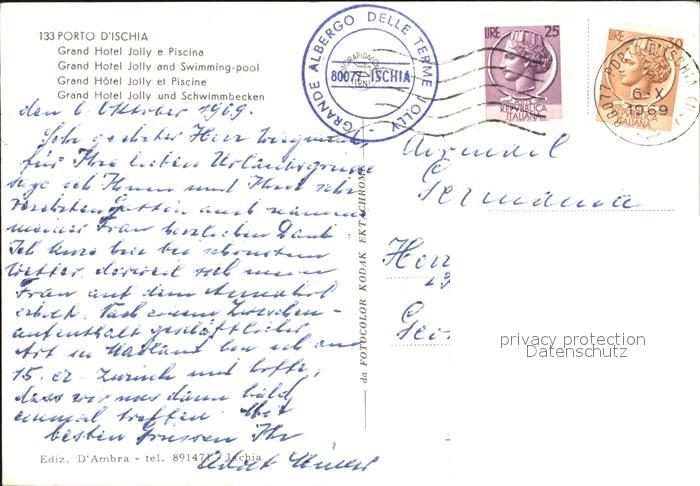 133 PORTO D'ISCHIA
Grand Hotel Jolly e Piscina
Grand Hotel Jolly and Swimming-pool
Grand Hôtel Jolly et Piscine
Grand Hotel Jolly und Schwimmbecken
GRANDE ALBERGO DELLE TERME JOLLY
80077 ISCHIA
LIRE 25
REPUBBLICA
ITALIANA
LIRE
ITALIANA
80077 PORTO D'ISCHIA
6-X
1969
den 6. Oktober 1969.
Sehr geehrter Herr
für Ihre lieben Urlaubsgrüsse
sage ich Ihnen und Ihrer sehr
verehrten Gattin auch namens
meiner Frau herzlichen Dank.
Ich kure hier bei schönstem
Wetter, derweil sich meine
Frau auf dem
erholt. Nach einem Zwischen-
aufenthalt geschäftlicher
Art in Mailand bin ich am
15. cr. zurück und hoffe,
dass wir uns dann bald
einmal treffen. Mit
besten Grüssen Ihr
Ediz. D'Ambra - tel. 891471 - Ischia
da FOTOCOLOR KODAK EKTACHROME
Germania
Herr
privacy protection
Datenschutz